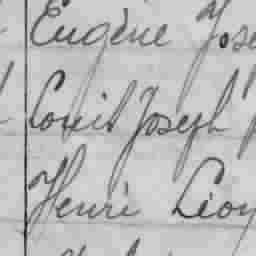 Eugène Jose
Louis Joseph
Henri Léon